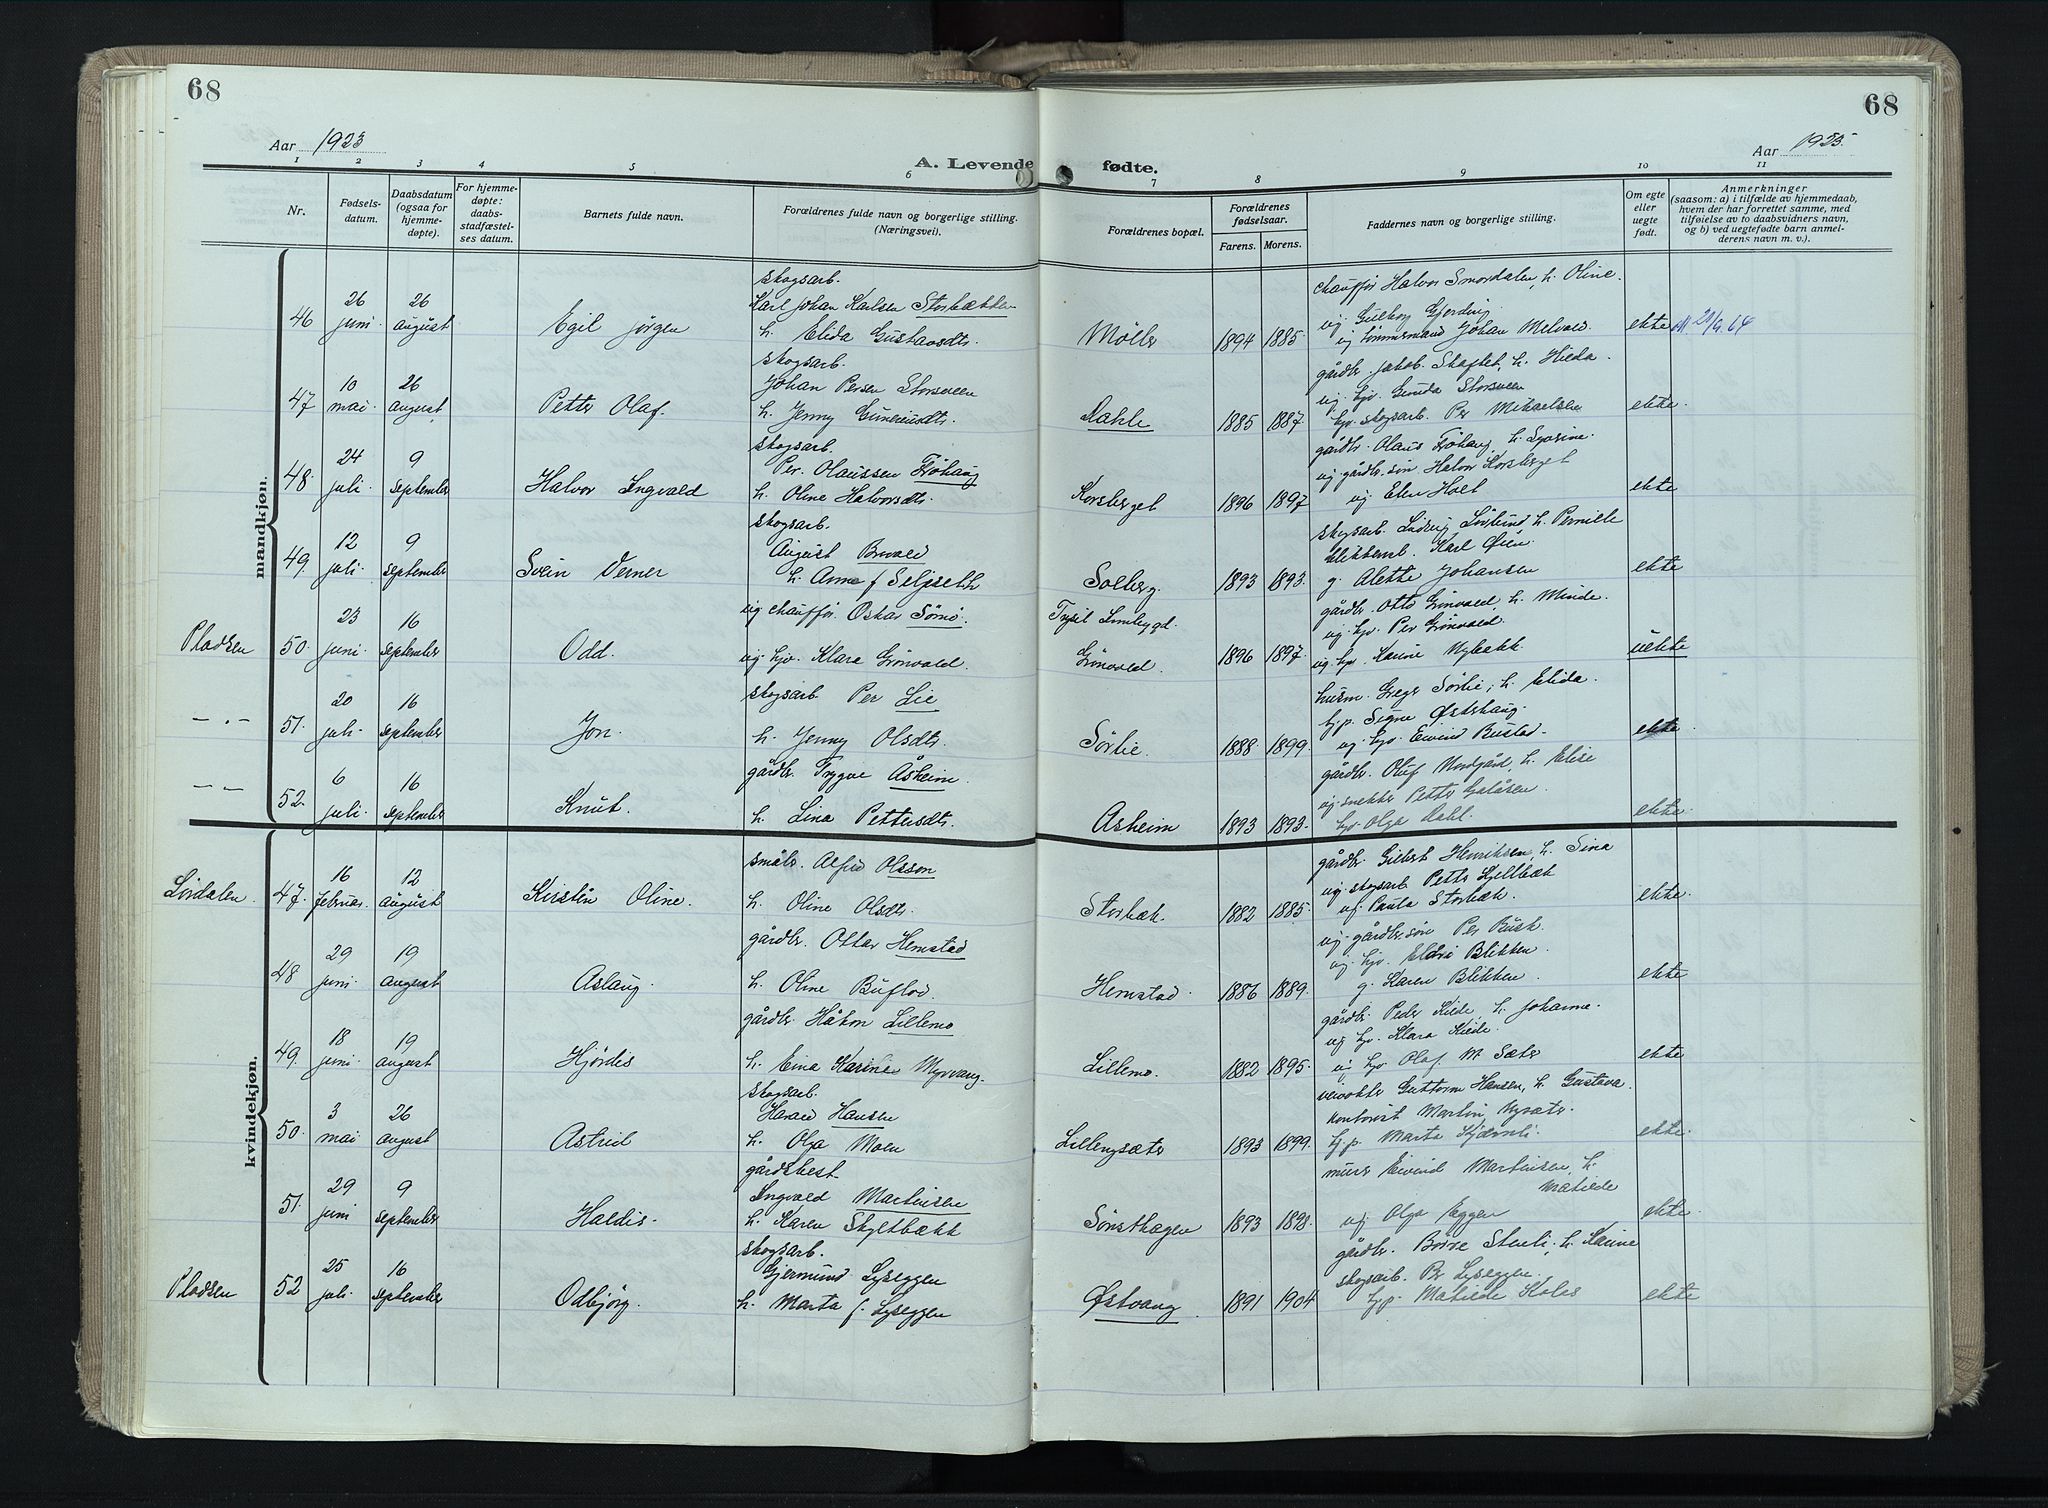 68
68
Aar 1923
Aar 1923.
A. Levende fødte.
1 2 3 4 5 6 7 8 9 10 11
Nr.
Fødsels-
datum.
Daabsdatum
(ogsaa for
hjemme-
døpte).
For hjemme-
døpte:
daabs-
stadfæstel-
ses datum.
Barnets fulde navn.
Forældrenes fulde navn og borgerlige stilling.
(Næringsvei).
Forældrenes bopæl.
Forældrenes
fødselsaar.
Farens. Morens.
Faddernes navn og borgerlige stilling.
Om egte
eller
uegte
født.
Anmerkninger
(saasom: a) i tilfælde av hjemmedaab,
hvem der har forrettet samme, med
tilføielse av to daabsvidners navn,
og b) ved uegtefødte barn anmel-
derens navn m. v.).
mandkjøn.
46 26 juni. 26 august Egil Jørgen
skogsarb.
Karl Johan Karlsen Storbækken
h. Elida Gustavsdtr.
Møller 1894 1885.
chauffør Halvor Smordalen, h. Oline.
ug Gulborg Gjerding
ug tømmermand Johan Melvold.
ekte
47 10 mai. 26 august Petter Olaf.
skogsarb.
Johan Persen Storsveen
h. Jenny Gunerius dtr.
Dahle 1885 1887.
gårdbr. Jakob Skaftet, h. Hilda.
ug. tjv. Gunda Storsveen
tjv. skogsarb. Per Mikaelsen
ekte.
48. 24 juli. 9 september Halvor Ingvald
skogsarb.
Per Olaussen Frøhaug
h. Oline Halvorsdtr.
Korsberget 1896 1897
gårdbr. Olaus Frøhaug, h. Lovine.
ug. gårdbr.søn Halvor Korsberget
ug Elen Holt
ekte
49. 12 juli. 9 september Svein Verner
skogsarb.
August Buvald
h. Anne f Seljseth
Solberg. 1893 1893.
skogsarb. Ludvig Lørlund, h. Pernille
blikkensl. Karl Øien.
g. Alette Johansen
ekte
Pladsen 50. 23 juni. 16 september Odd.
ug chauffør. Oskar Sømo.
ug. tjv. Klara Grønvold.
Trysil Innbygd.
Grønvold. 1896 1897.
gårdbr. Otto Grønvold, h. Minda.
ug. tjv. Per Grønvold.
ug. tjv. Karine Nybakk.
uekte
— . — 51. 20 juli. 16 september Jon.
skogsarb Per Lie
h. Jenny Olsdtr.
Sørlie. 1888 1899.
husm. Greger Sørlie, h. Elida.
tjp. Signe Østerhaug.
ug. tjv. Eivind Rustad.
ekte
— — 52. 6 juli. 16 september Knut.
gårdbr. Trygve Åsheim.
h. Lina Pettersdtr.
Asheim 1893 1893.
gårdbr. Oluf Nordgård, h. Elise
ug. snekker Petter Galåsen.
tjv. Olga Dahl.
ekte.
kvindekjøn.
Lørdalen. 47. 16 februar. 12 august Kirstin Oline.
småbr. Alfred Olsson
h. Oline Olsdtr.
Storbæk. 1882 1885.
gårdbr. Gilbert Henriksen, h. Lina
ug. skogsarb Petter Kjelbæk
ug. Paula Storbæk.
ekte.
48 29 juni. 19 august Aslaug.
gårdbr. Ottar Hemstad
h. Oline Buflod.
Hemstad. 1886 1889.
ug. gårdbr.søn Per Bush.
ug. tjv. Eldri Blikken.
g. Karen Blikken.
ekte
49. 18 juni. 19 august Hjørdis
gårdbr. Håkon Lillemo
h. Eina Karine Myrvang.
Lillemo. 1882 1895.
gårdbr Peder Kilde, h. Johanne.
ug tjv. Klara Kilde.
ug tjv. Olaf M. Sæter
ekte
50. 3 mai 26 august Astrid
skogsarb.
Harald Hansen
h. Olga Moen
Lillengsæter 1893 1899.
veivokter Guttorm Hansen, h. Gustava.
kontorist Martin Nysæter.
tjp. Marta Kjærnli.
ekte.
51. 29 juni 9 september Haldis.
gårdsbest.
Ingvald Martinsen
h. Karen Skyltbækk
Sønsthagen 1893 1898.
murer Eivind Martinsen, h.
Matilde
ug Olga Eggen
ekte.
Pladsen 52 25 juli. 16 september Odbjørg.
skogsarb.
Gjermund Lyseggen
h. Marta f. Lyseggen
Østvang 1891 1904
gårdbr. Borre Stenli, h. Karine
skogsarb. Pr Lyseggen.
tjp. Matilde Holes
ekte